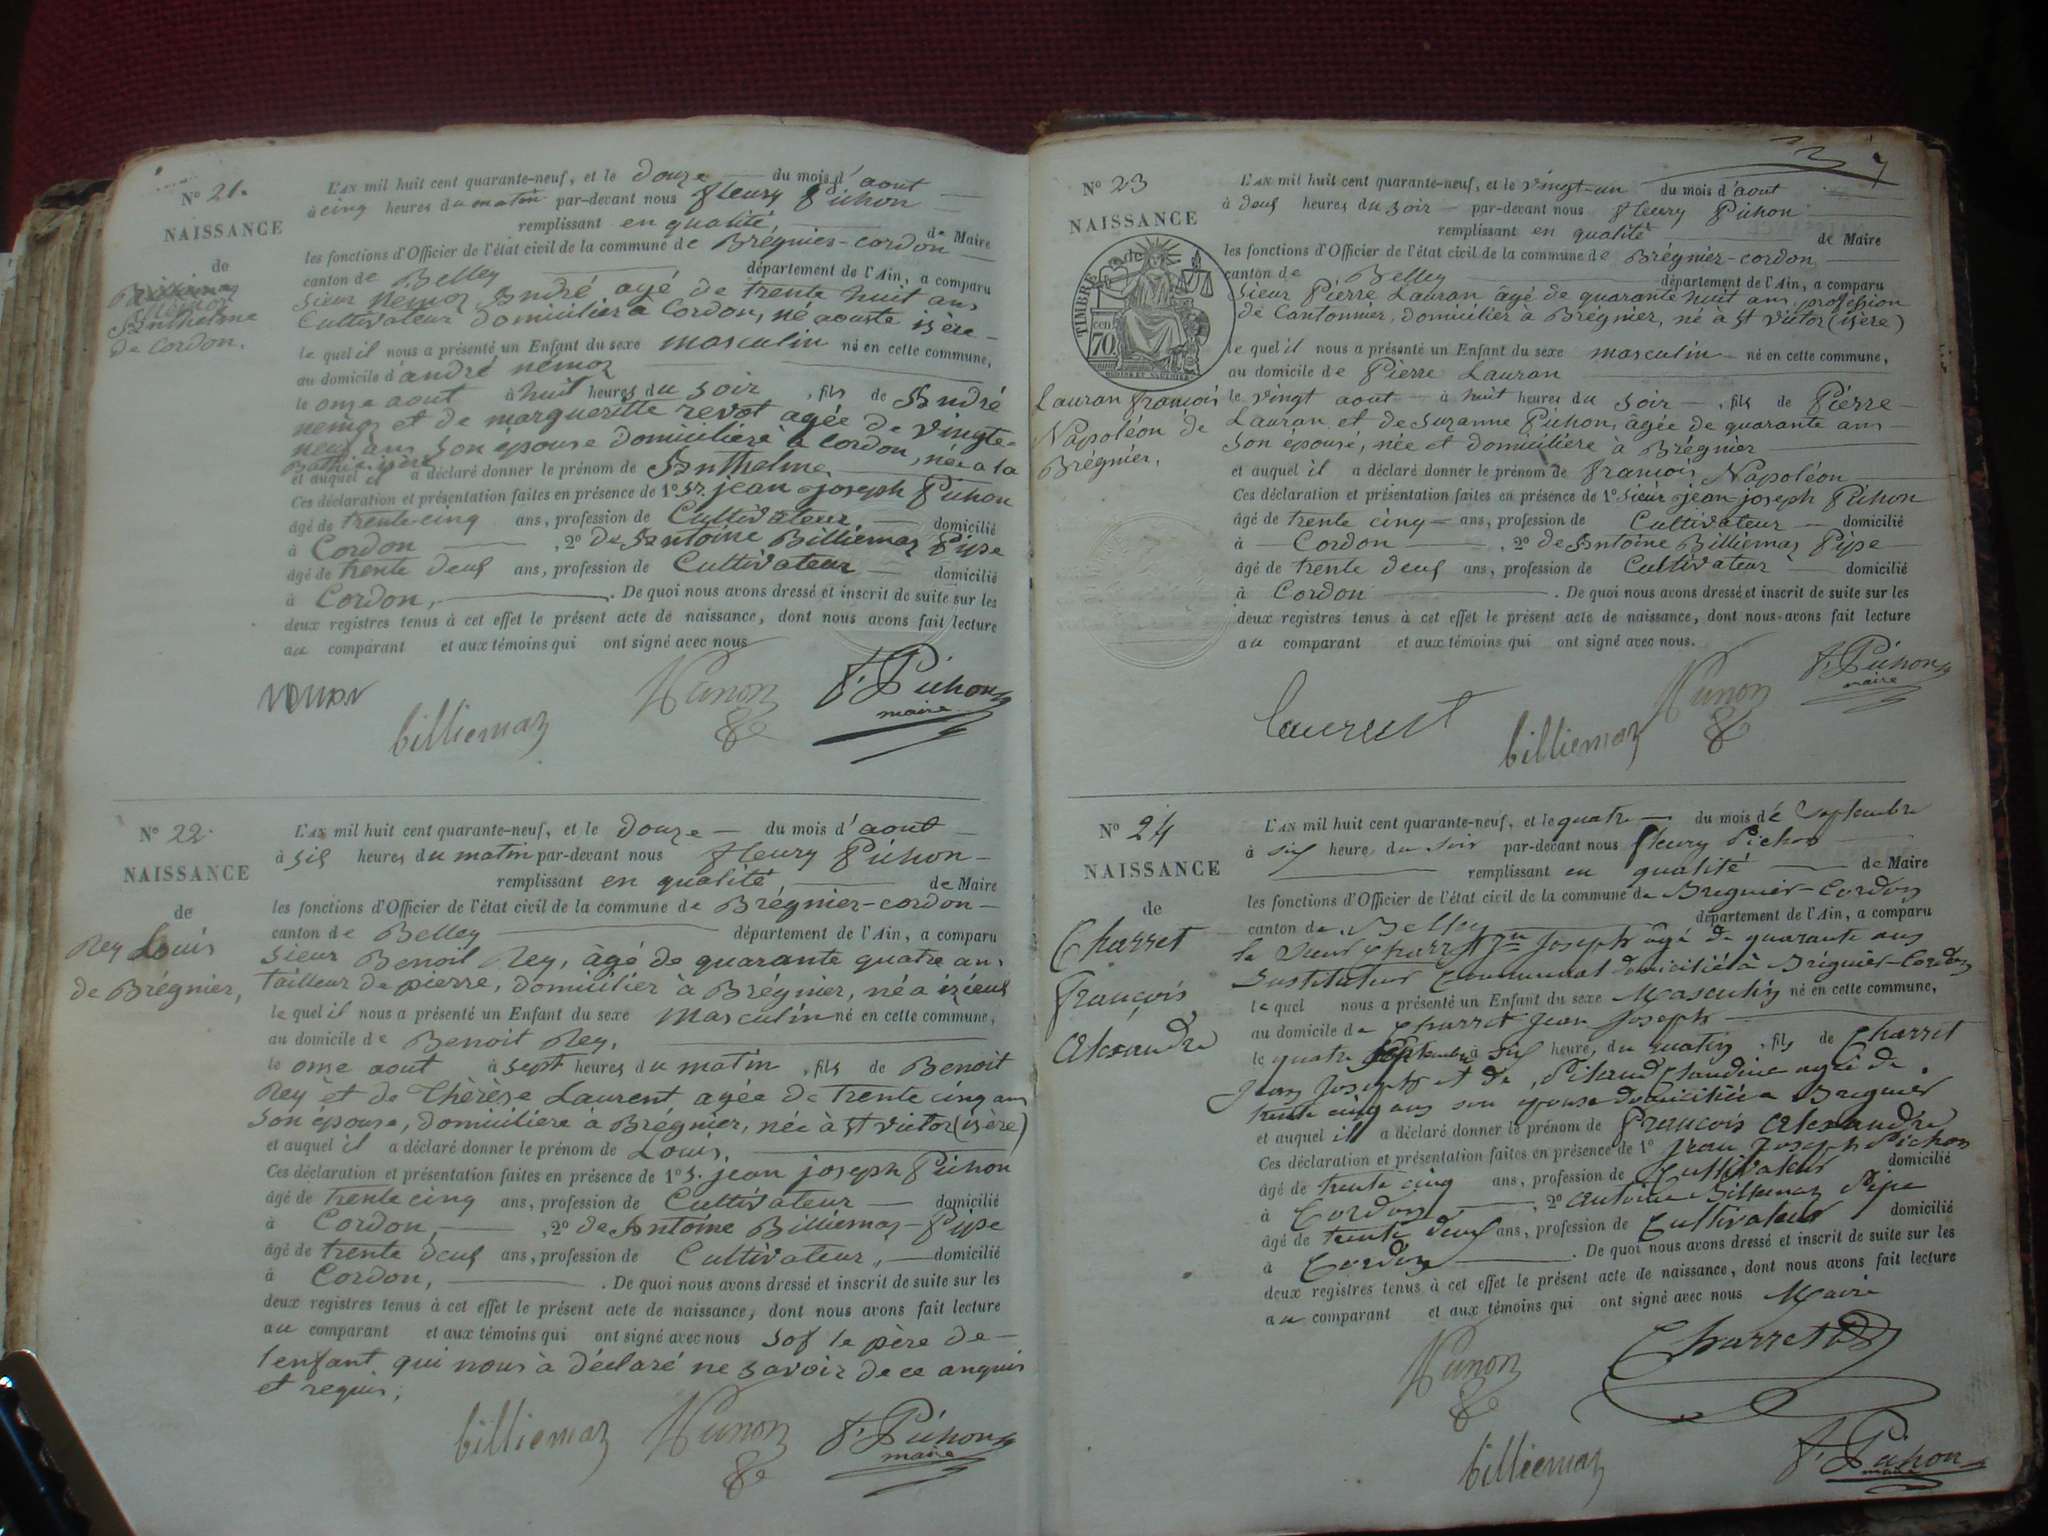 N° 21.
NAISSANCE
de
Anthelme
de Cordon.
L'AN mil huit cent quarante-neuf, et le douze du mois d'aout
à cinq heures du matin par-devant nous fleury Pichon
remplissant en qualité, de Maire
les fonctions d'Officier de l'état civil de la commune de Brégnier-cordon
canton de Belley département de l'Ain, a comparu
Sieur nemoz André agé de trente huit ans
Cultivateur domicilier à Cordon, né isère
le quel il nous a présenté un Enfant du sexe masculin né en cette commune,
au domicile d'andré némoz
le onse aout à huit heures du soir, fils de André
nemoz et de margueritte revot agée de vingte-
neuf ans son épouse domicilière à Cordon, née a la
et auquel il a déclaré donner le prénom de Anthelme
Ces déclaration et présentation faites en présence de 1° Sr. jean joseph Pichon
âgé de trente-cinq ans, profession de Cultivateur domicilié
à Cordon, 2° de Antoine Billiemaz Pipe
âgé de trente deus ans, profession de Cultivateur domicilié
à Cordon, . De quoi nous avons dressé et inscrit de suite sur les
deux registres tenus à cet effet le présent acte de naissance, dont nous avons fait lecture
au comparant et aux témoins qui ont signé avec nous
nemoz
billiemaz
f. Pichon
maire
N° 22.
NAISSANCE
de
Rey Louis
de Brégnier,
L'AN mil huit cent quarante-neuf, et le douze du mois d'aout
à sis heures du matin par-devant nous fleury Pichon
remplissant en qualité, de Maire
les fonctions d'Officier de l'état civil de la commune de Brégnier-cordon
canton de Belley département de l'Ain, a comparu
Sieur Benoit Rey, âgé de quarante quatre ans
tailleur de pierre, domicilier à Brégnier, né a izieus
le quel il nous a présenté un Enfant du sexe Masculin né en cette commune,
au domicile de Benoit Rey,
le onse aout à sept heures du matin, fils de Benoit
Rey et de Thérèse Laurent agée de trente cinq ans
son épouse, domicilière à Brégnier, née à St victor (isère)
et auquel il a déclaré donner le prénom de Louis,
Ces déclaration et présentation faites en présence de 1° S. jean joseph Pichon
âgé de trente cinq ans, profession de Cultivateur domicilié
à Cordon, , 2° de Antoine Billiemaz Pipe
âgé de trente deus ans, profession de Cultivateur, domicilié
à Cordon, . De quoi nous avons dressé et inscrit de suite sur les
deux registres tenus à cet effet le présent acte de naissance, dont nous avons fait lecture
au comparant et aux témoins qui ont signé avec nous sof le père de
l'enfant qui nous à déclaré ne savoir de ce anquis
et requis,
billiemaz
f. Pichon
maire
7
N° 23
NAISSANCE
de
TIMBRE
70
Lauran françois
Napoléon de
Brégnier,
L'AN mil huit cent quarante-neuf, et le vingt-un du mois d'aout
à deus heures du soir par-devant nous fleury Pichon
remplissant en qualité de Maire
les fonctions d'Officier de l'état civil de la commune de Brégnier-cordon
canton de Belley département de l'Ain, a comparu
Sieur Pierre Lauran âgé de quarante huit ans, profession
de Cantonnier, domicilier à Brégnier, né à St victor (isère)
le quel il nous a présenté un Enfant du sexe masculin né en cette commune,
au domicile de Pierre Lauran
le vingt aout à huit heures du soir, fils de Pierre
Lauran et de Suzanne Pichon, âgée de quarante ans
son épouse, née et domicilière à Brégnier
et auquel il a déclaré donner le prénom de françois Napoléon
Ces déclaration et présentation faites en présence de 1° Sieur jean joseph Pichon
âgé de trente cinq ans, profession de Cultivateur domicilié
à Cordon, 2° de Antoine Billiemaz Pipe
âgé de trente deus ans, profession de Cultivateur domicilié
à Cordon . De quoi nous avons dressé et inscrit de suite sur les
deux registres tenus à cet effet le présent acte de naissance, dont nous avons fait lecture
au comparant et aux témoins qui ont signé avec nous.
Laurent
billiemaz
f. Pichon
maire
N° 24
NAISSANCE
de
Charret
françois
Alexandre
L'AN mil huit cent quarante-neuf, et le quatre du mois de Septembre
à six heure du soir par-devant nous fleury Pichon
remplissant en qualité de Maire
les fonctions d'Officier de l'état civil de la commune de Bregnier-Cordon
canton de Belley département de l'Ain, a comparu
le Sieur Charret Jn Joseph âgé de quarante ans
Instituteur Communal domicilié à Brégnier-Cordon
le quel nous a présenté un Enfant du sexe Masculin né en cette commune,
au domicile de Charret Jean Joseph
le quatre Septembre à six heure, du matin, fils de Charret
Jean Joseph et de Claudine agée de
trente cinq ans son épouse domiciliée a Bregnier
et auquel il a déclaré donner le prénom de François Alexandre
Ces déclaration et présentation faites en présence de 1° Jean Joseph Pichon
âgé de trente cinq ans, profession de Cultivateur domicilié
à Cordon, 2° antoine Billiemaz Pipe
âgé de trente deux ans, profession de Cultivateur domicilié
à Cordon . De quoi nous avons dressé et inscrit de suite sur les
deux registres tenus à cet effet le présent acte de naissance, dont nous avons fait lecture
au comparant et aux témoins qui ont signé avec nous Maire
Charret
billiemaz
f. Pichon
maire